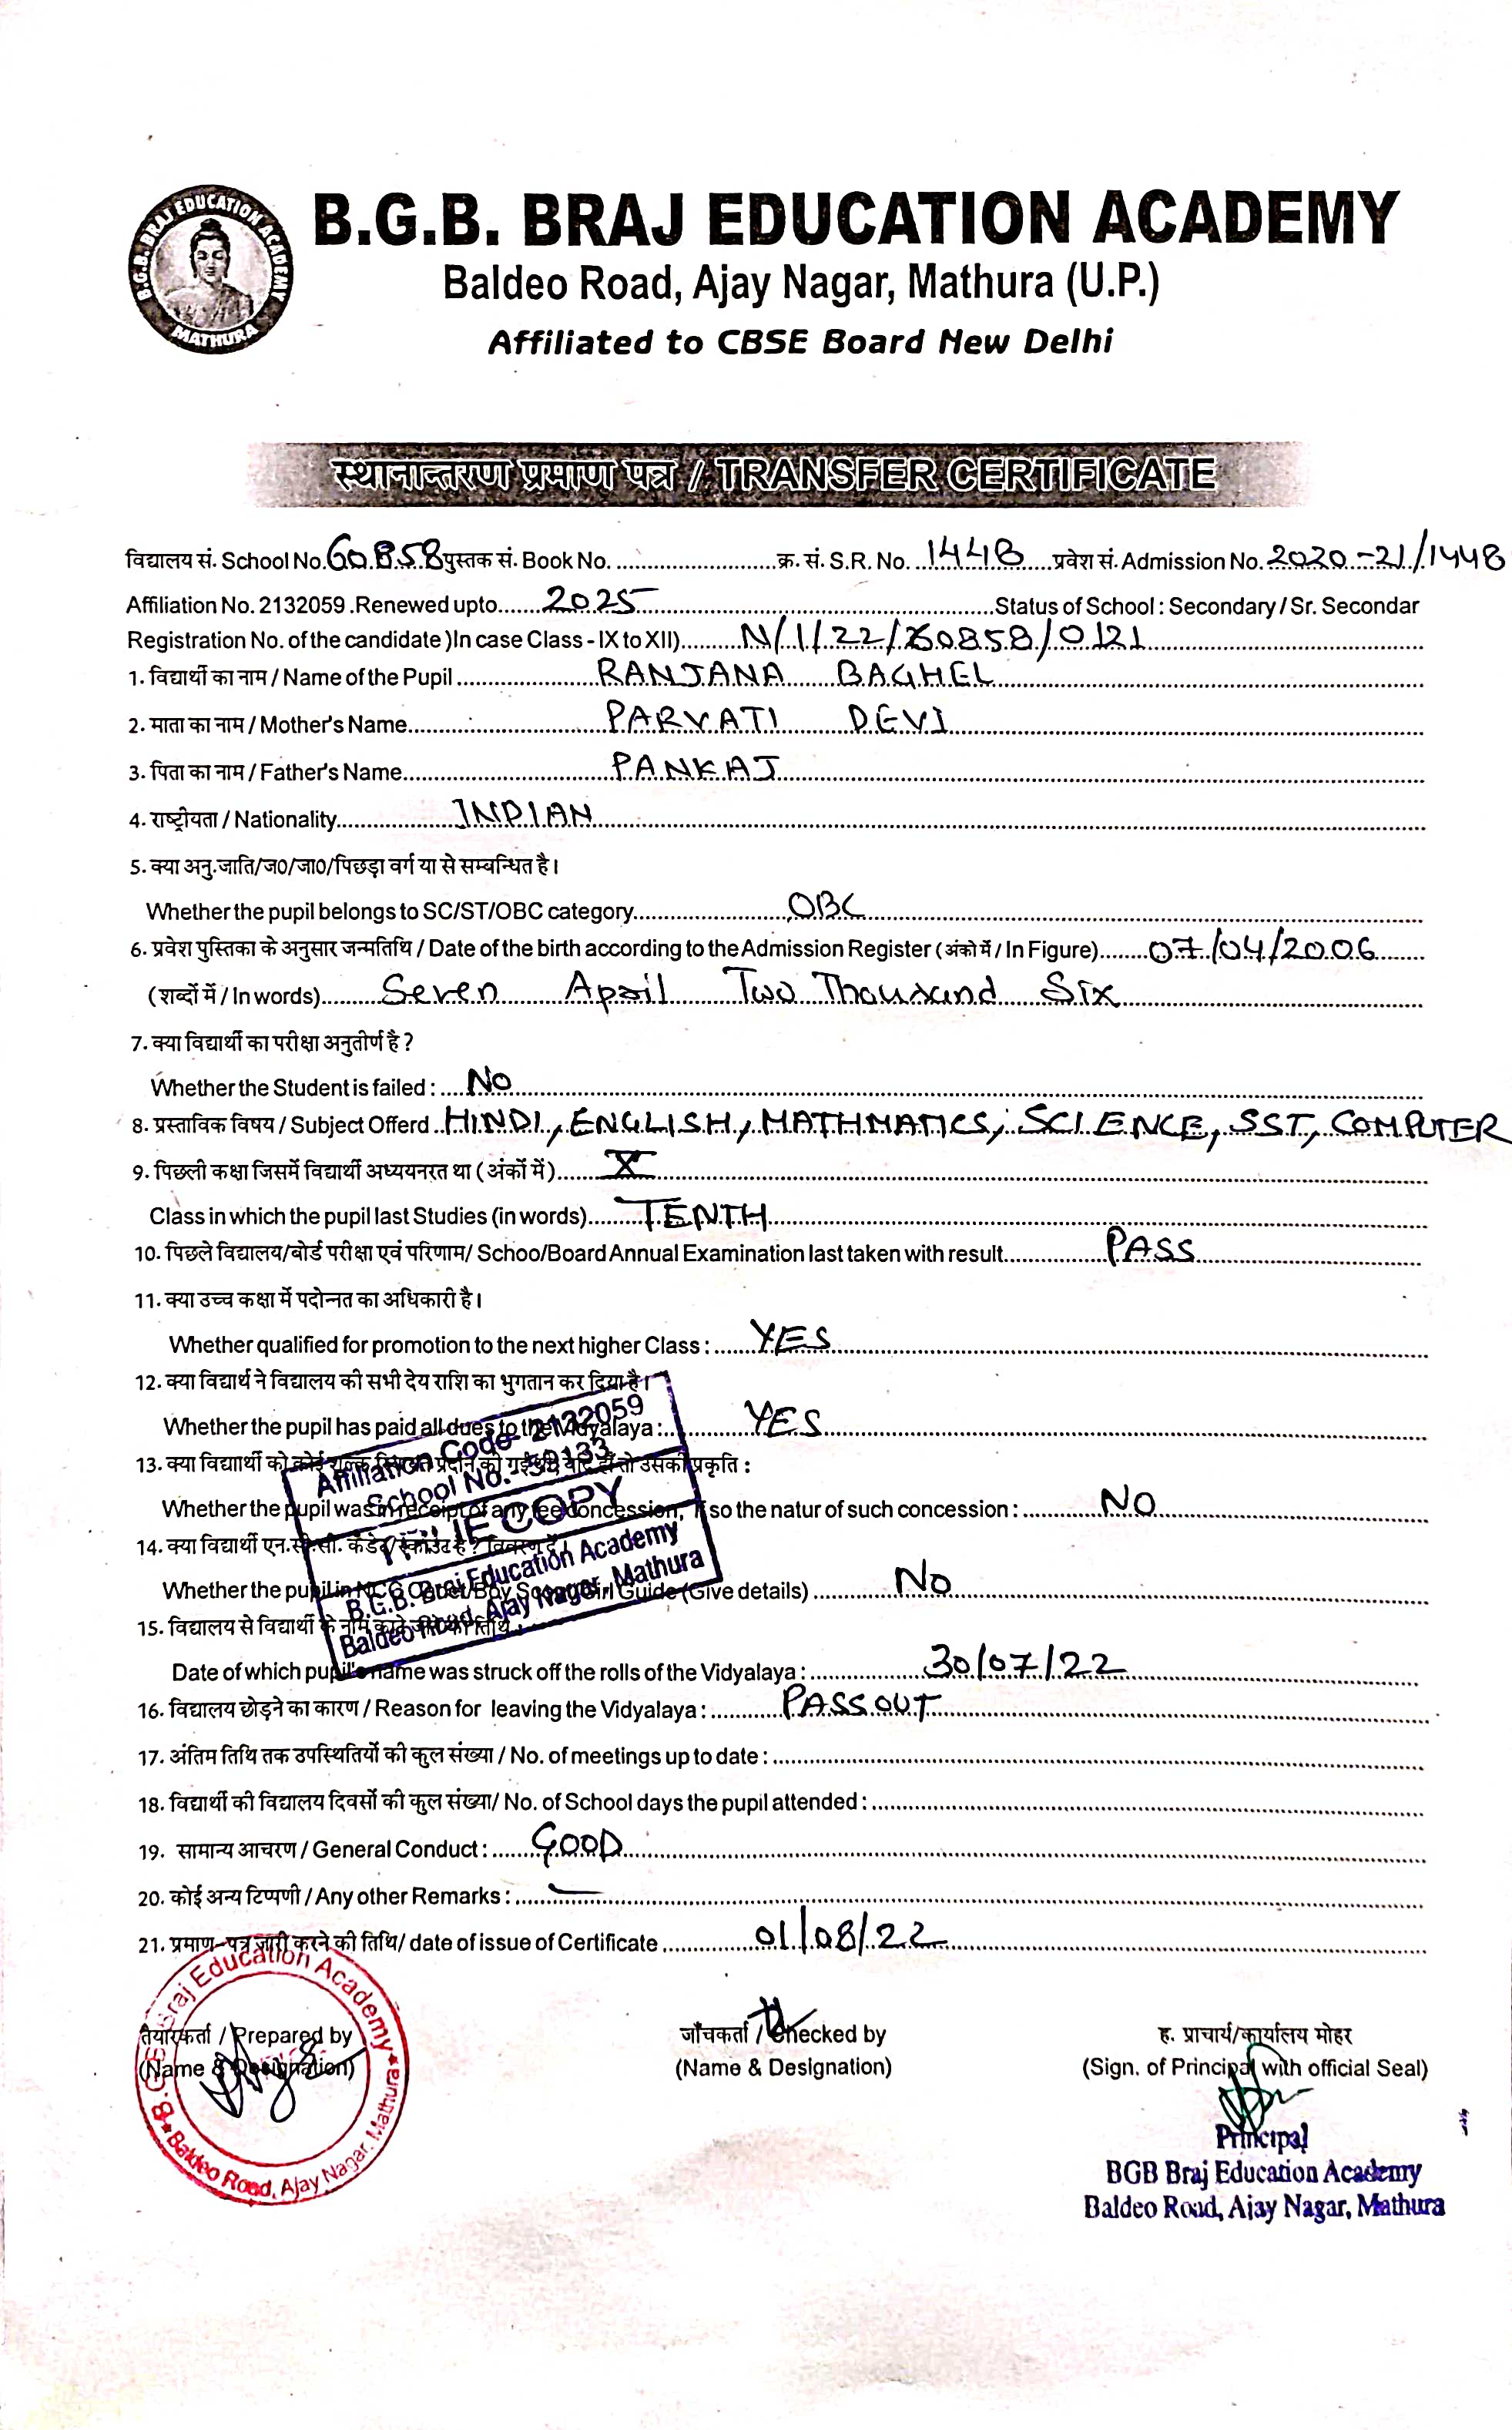 B.G.B. BRAJ EDUCATION ACADEMY
MATHURA
B.G.B. BRAJ EDUCATION ACADEMY
Baldeo Road, Ajay Nagar, Mathura (U.P.)
Affiliated to CBSE Board New Delhi
स्थानान्तरण प्रमाण पत्र / TRANSFER CERTIFICATE
विद्यालय सं. School No. 60858 पुस्तक सं. Book No. .......... क्र. सं. S.R. No. 1448 प्रवेश सं. Admission No. 2020-21/1448
Affiliation No. 2132059 .Renewed upto....... 2025 ..........Status of School : Secondary / Sr. Secondar
Registration No. of the candidate )In case Class - IX to XII).......... N/1/22/60858/0121
1. विद्यार्थी का नाम / Name of the Pupil .......... RANJANA BAGHEL
2. माता का नाम / Mother's Name.......... PARVATI DEVI
3. पिता का नाम / Father's Name.......... PANKAJ
4. राष्ट्रीयता / Nationality.......... INDIAN
5. क्या अनु.जाति/ज0/जा0/पिछड़ा वर्ग या से सम्बन्धित है।
Whether the pupil belongs to SC/ST/OBC category.......... OBC
6. प्रवेश पुस्तिका के अनुसार जन्मतिथि / Date of the birth according to the Admission Register (अंको में / In Figure)........ 07/04/2006
(शब्दों में / In words).......... Seven April Two Thousand Six
7. क्या विद्यार्थी का परीक्षा अनुतीर्ण है ?
Whether the Student is failed : .... No
8. प्रस्ताविक विषय / Subject Offerd .. HINDI, ENGLISH, MATHMATICS, SCIENCE, SST, COMPUTER
9. पिछली कक्षा जिसमें विद्यार्थी अध्ययनरत था (अंकों में)....... X
Class in which the pupil last Studies (in words)....... TENTH
10. पिछले विद्यालय/बोर्ड परीक्षा एवं परिणाम/ Schoo/Board Annual Examination last taken with result.......... PASS
11. क्या उच्च कक्षा में पदोन्नत का अधिकारी है।
Whether qualified for promotion to the next higher Class : ....... YES
12. क्या विद्यार्थ ने विद्यालय की सभी देय राशि का भुगतान कर दिया है।
Whether the pupil has paid all dues to the Vidyalaya : ....... YES
13. क्या विद्यार्थी को कोई शुल्क प्रदान की गई थी यदि हाँ तो उसकी प्रकृति :
Whether the pupil was in receipt of any fee concession, if so the natur of such concession : .......... No
14. क्या विद्यार्थी एन.सी.सी. कैडेट/स्काउट है ? विवरण दें।
Whether the pupil in NCC Cadet/Boy Scout/Girl Guide (Give details) .......... No
15. विद्यालय से विद्यार्थी के नाम काटे जाने की तिथि :
Date of which pupil's name was struck off the rolls of the Vidyalaya : .......... 30/07/22
16. विद्यालय छोड़ने का कारण / Reason for leaving the Vidyalaya : .......... PASS OUT
17. अंतिम तिथि तक उपस्थितियों की कुल संख्या / No. of meetings up to date : ..........
18. विद्यार्थी की विद्यालय दिवसों की कुल संख्या/ No. of School days the pupil attended : ..........
19. सामान्य आचरण / General Conduct : ....... GOOD
20. कोई अन्य टिप्पणी / Any other Remarks : ....... —
21. प्रमाण-पत्र जारी करने की तिथि/ date of issue of Certificate .......... 01/08/22
Affiliation Code- 2132059
School No.- 59133
TRUE COPY
B.G.B. Braj Education Academy
Baldeo Road, Ajay Nagar, Mathura
तैयारकर्ता / Prepared by
(Name & Designation)
जाँचकर्ता / Checked by
(Name & Designation)
ह. प्राचार्य/कार्यालय मोहर
(Sign. of Principal with official Seal)
B.G.B. Braj Education Academy
Baldeo Road, Ajay Nagar, Mathura
Principal
BGB Braj Education Academy
Baldeo Road, Ajay Nagar, Mathura